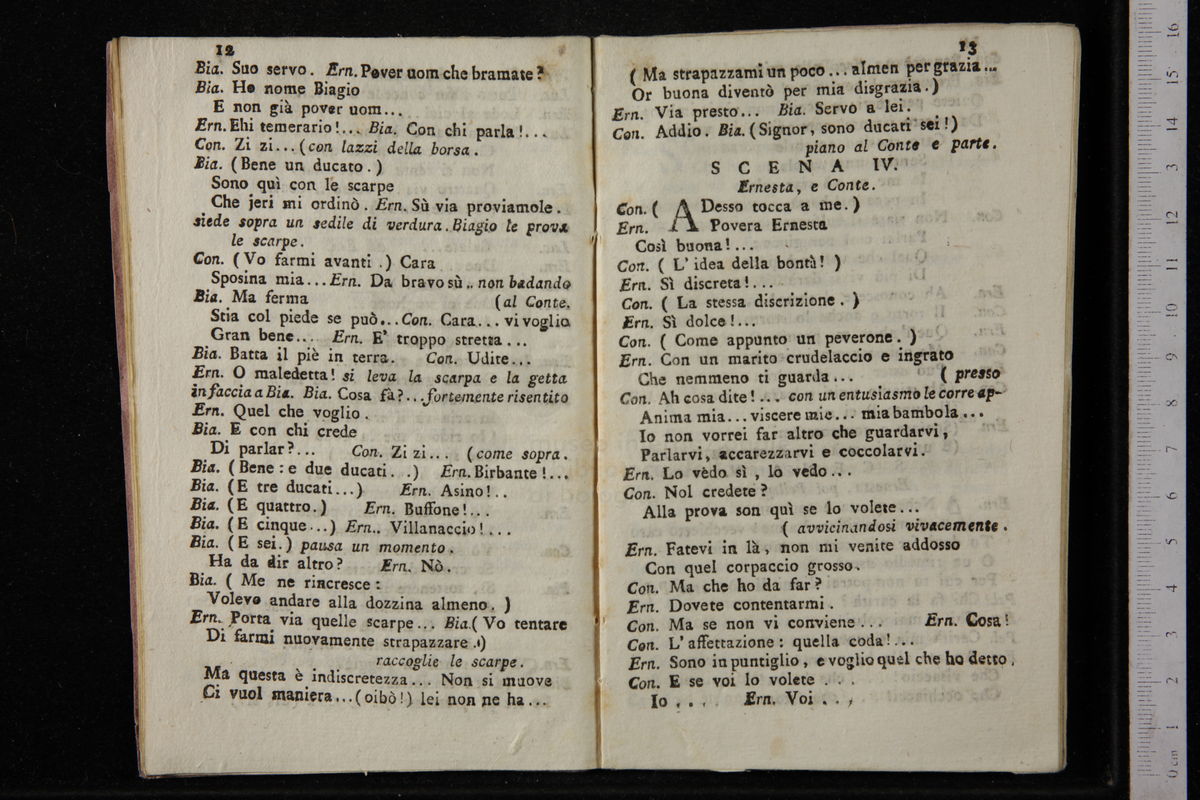 12
Bia. Suo servo. Ern. Pover uom che bramate?
Bia. Ho nome Biagio
E non già pover uom...
Ern. Ehi temerario!... Bia. Con chi parla!...
Con. Zi zi...(con lazzi della borsa.
Bia. (Bene un ducato.)
Sono quì con le scarpe
Che jeri mi ordinò. Ern. Sù via proviamole.
siede sopra un sedile di verdura. Biagio le prova
le scarpe.
Con. (Vo farmi avanti.) Cara
Sposina mia...Ern. Da bravo sù.. non badando
Bia. Ma ferma (al Conte.
Stia col piede se può...Con. Cara... vi voglio
Gran bene... Ern. E' troppo stretta...
Bia. Batta il piè in terra. Con. Udite...
Ern. O maledetta! si leva la scarpa e la getta
in faccia a Bia. Bia. Cosa fà?...fortemente risentito
Ern. Quel che voglio.
Bia. E con chi crede
Di parlar?... Con. Zi zi... (come sopra.
Bia. (Bene: e due ducati...) Ern. Birbante!...
Bia. (E tre ducati...) Ern. Asino!..
Bia. (E quattro.) Ern. Buffone!...
Bia. (E cinque...) Ern.. Villanaccio!...
Bia. (E sei.) pausa un momento.
Ha da dir altro? Ern. Nò.
Bia. ( Me ne rincresce:
Volevo andare alla dozzina almeno. )
Ern. Porta via quelle scarpe... Bia.( Vo tentare
Di farmi nuovamente strapazzare.)
raccoglie le scarpe.
Ma questa è indiscretezza... Non si muove
Ci vuol maniera...(oibò!) lei non ne ha...
13
( Ma strapazzami un poco... almen per grazia...
Or buona diventò per mia disgrazia.)
Ern. Via presto... Bia. Servo a lei.
Con. Addio. Bia. (Signor, sono ducati sei!)
piano al Conte e parte.
SCENA IV.
Ernesta, e Conte.
Con. ( ADesso tocca a me.)
Ern. Povera Ernesta
Così buona!...
Con. ( L'idea della bontà! )
Ern. Sì discreta!...
Con. ( La stessa discrizione. )
Ern. Sì dolce!...
Con. ( Come appunto un peverone. )
Ern. Con un marito crudelaccio e ingrato
Che nemmeno ti guarda... ( presso
Con. Ah cosa dite!... con un entusiasmo le corre ap-
Anima mia...viscere mie... mia bambola...
Io non vorrei far altro che guardarvi,
Parlarvi, accarezzarvi e coccolarvi.
Ern. Lo vèdo sì, lo vedo...
Con. Nol credete?
Alla prova son quì se lo volete...
( avvicinandosi vivacemente.
Ern. Fatevi in là, non mi venite addosso
Con quel corpaccio grosso.
Con. Ma che ho da far?
Ern. Dovete contentarmi.
Con. Ma se non vi conviene... Ern. Cosa!
Con. L'affettazione: quella coda!...
Ern. Sono in puntiglio, e voglio quel che ho detto.
Con. E se voi lo volete...
Io.... Ern. Voi...